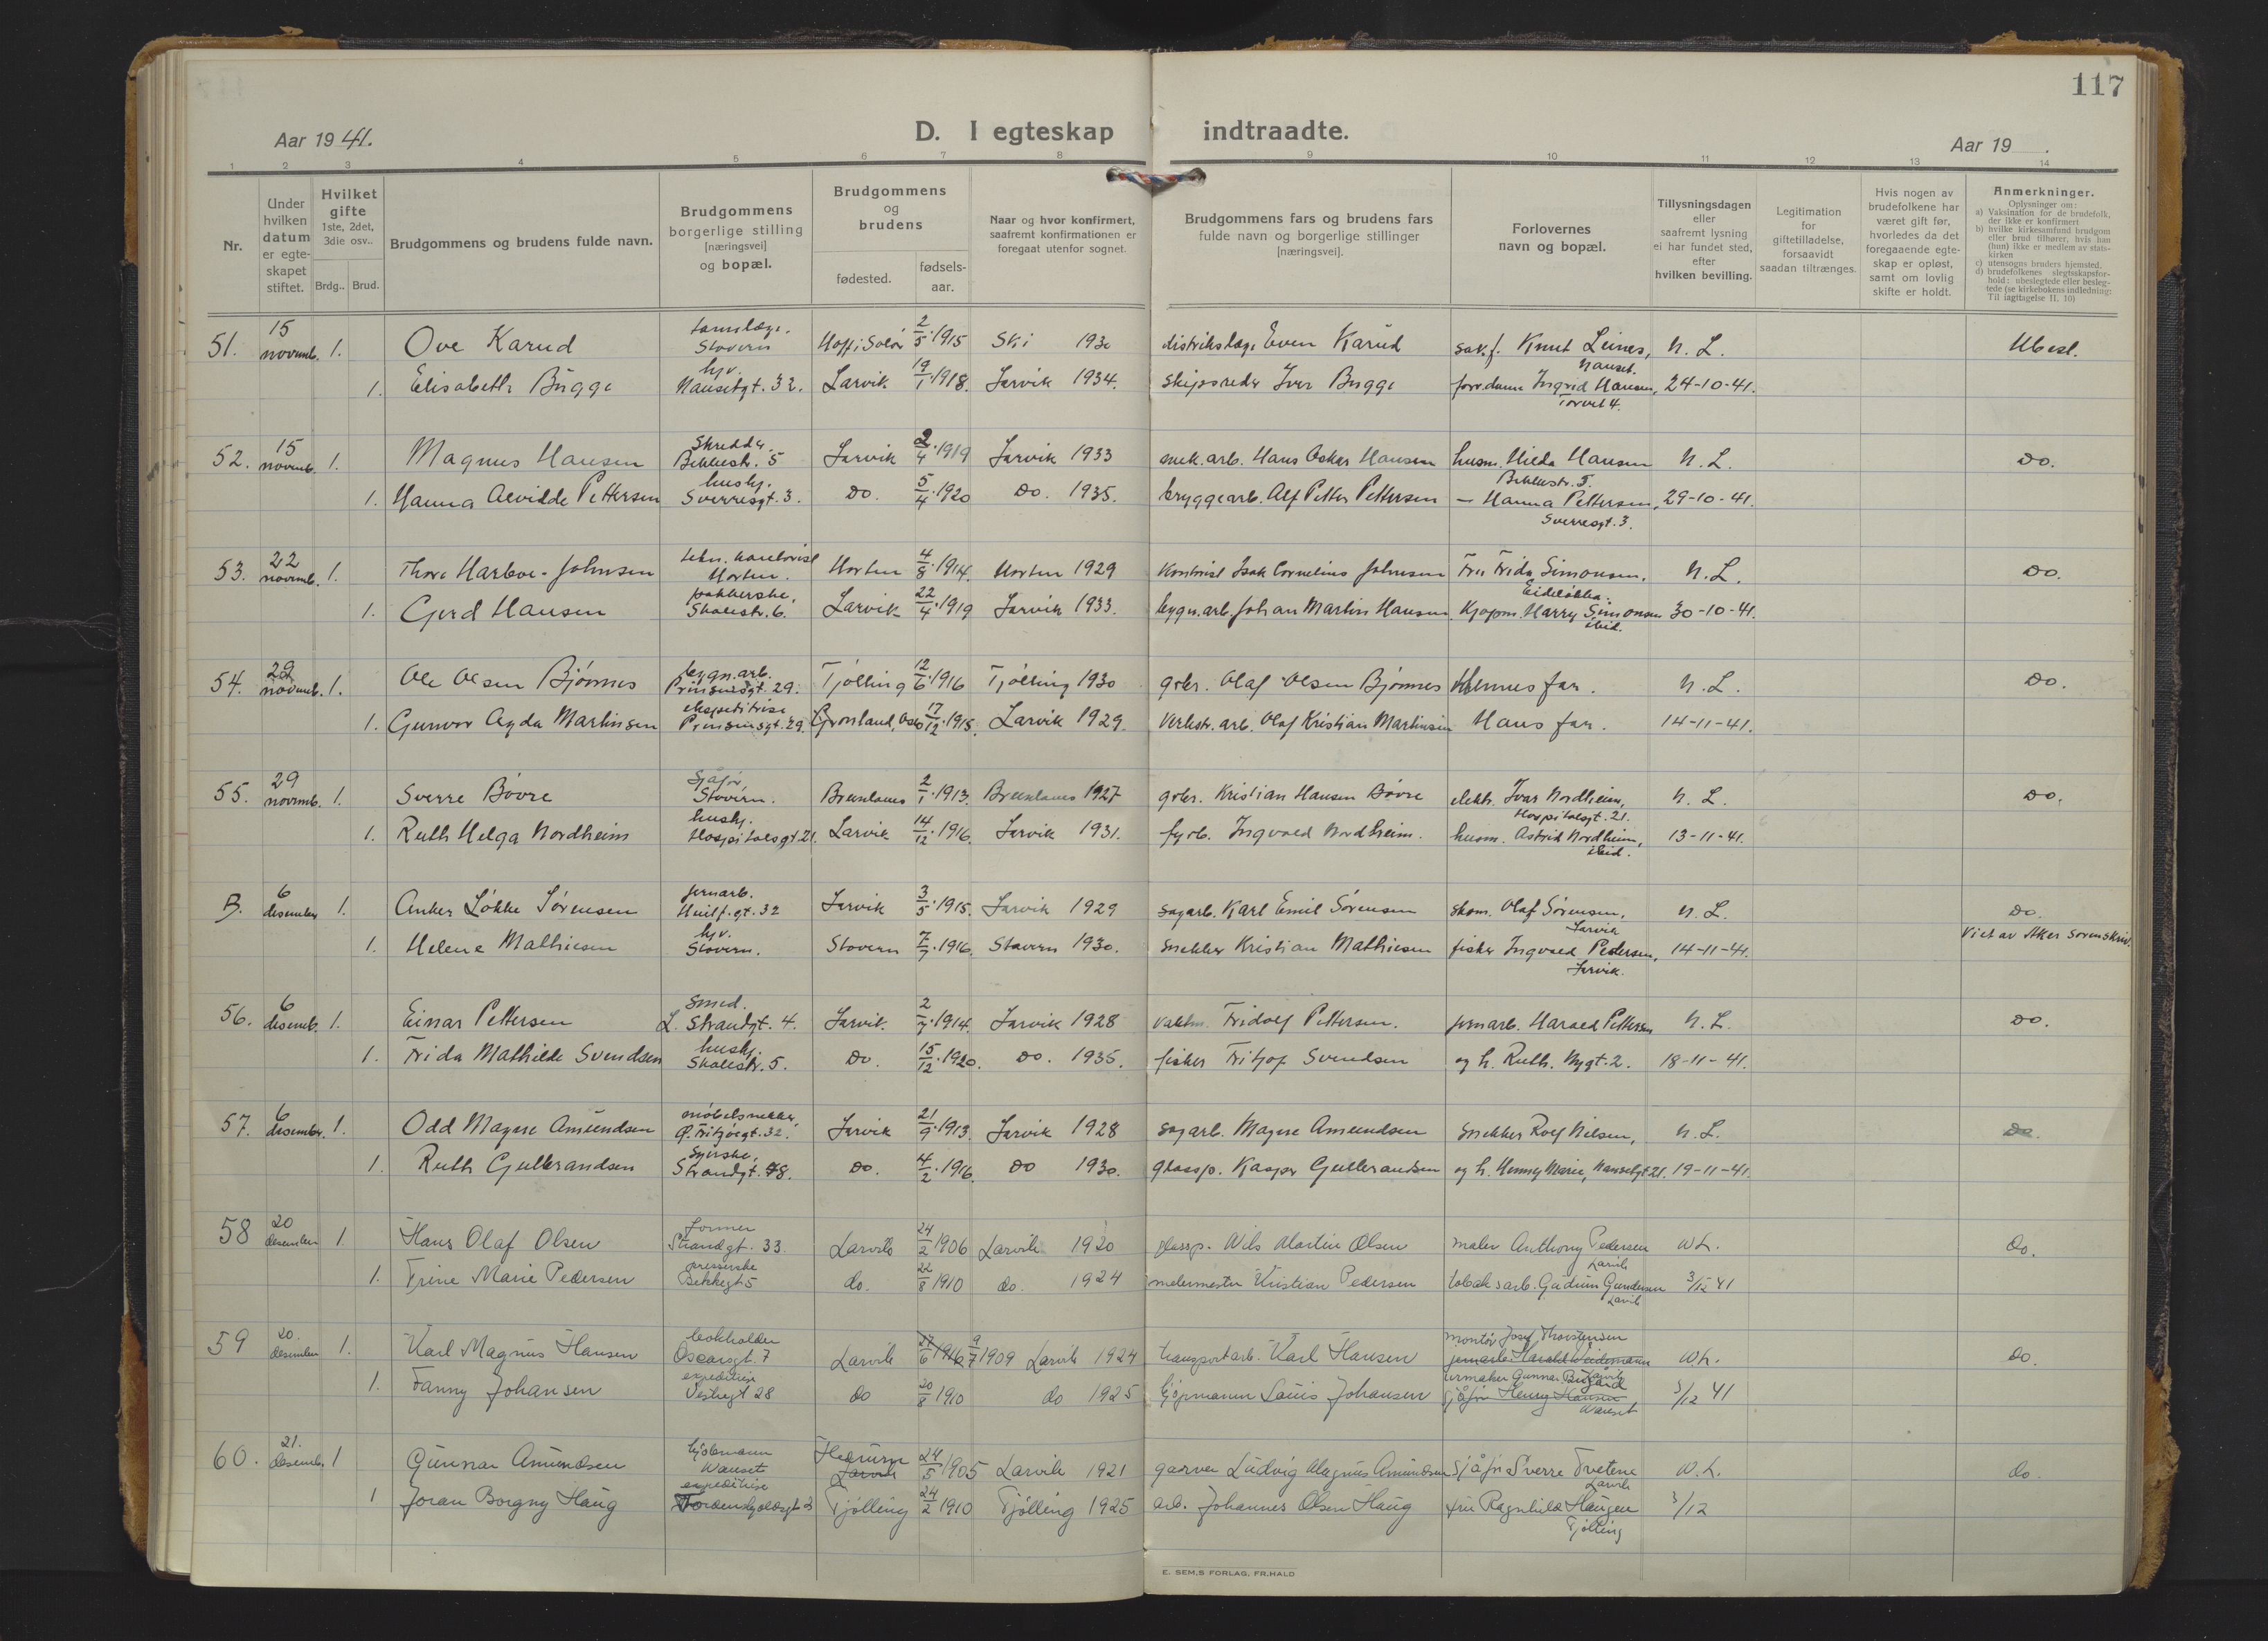 117
Aar 1941.
D. I egteskap indtraadte.
Aar 19 .
1 2 3 4 5 6 7 8 9 10 11 12 13 14
Nr.
Under hvilken datum er egte-skapet stiftet.
Hvilket gifte 1ste, 2det, 3die osv..
Brdg.. Brud.
Brudgommens og brudens fulde navn.
Brudgommens borgerlige stilling [næringsvei] og bopæl.
Brudgommens og brudens
fødested.
fødsels-aar.
Naar og hvor konfirmert, saafremt konfirmationen er foregaat utenfor sognet.
Brudgommens fars og brudens fars fulde navn og borgerlige stillinger [næringsvei].
Forlovernes navn og bopæl.
Tillysningsdagen eller saafremt lysning ei har fundet sted, efter hvilken bevilling.
Legitimation for giftetilladelse, forsaavidt saadan tiltrænges.
Hvis nogen av brudefolkene har været gift før, hvorledes da det foregaaende egte-skap er opløst, samt om lovlig skifte er holdt.
Anmerkninger.
Oplysninger om:
a) Vaksination for de brudefolk, der ikke er konfirmert
b) hvilke kirkesamfund brudgom eller brud tilhører, hvis han (hun) ikke er medlem av stats-kirken
c) utensogns bruders hjemsted.
d) brudefolkenes slegtsskapsfor-hold: ubeslegtede eller besleg-tede (se kirkebokens indledning: Til iagttagelse II. 10)
51. 15 novemb. 1. Ove Karud tannlæge. Stavern Hoff i Solør 2/5 1915 Ski 1930 distriktslæge Even Karud sakf. Knut Leines, Nanset. N. L. Ubesl.
1. Elisabeth Bugge hjv. Nansetgt. 32. Larvik 19/1 1918. Larvik 1934. skipsreder Iver Bugge Ingrid Hansen, Torvet 4. 24-10-41.
52. 15 novemb. 1. Magnus Hansen Skredder. Bekkestr. 5 Larvik 2/4 1919 Larvik 1933 mek.arb. Hans Oskar Hansen husm. Hilda Hansen Bekkestr. 5. N. L. Do.
1. Hanna Alvilde Pettersen hushj. Sverresgt. 3. Do. 5/4 1920 Do. 1935. bryggearb. Alf Petter Pettersen — Hanna Pettersen, Sverresgt. 3. 29-10-41.
53. 22 novemb. 1. Thore Harboe-Johnsen tekn. kontorist Horten. Horten 4/8 1914. Horten 1929 Kontorist Isak Cornelius Johnsen Fru Frida Simonsen, Eideløkka. N. L. Do.
1. Gerd Hansen pakkerske, Skolestr. 6. Larvik 22/4 1919 Larvik 1933. bygn.arb. Johan Martin Hansen. Kjøpm. Harry Simonsen ibid. 30-10-41.
54. 29 novemb. 1. Ole Olsen Bjønnes bygn.arb. Prinsensgt. 29. Tjølling 12/6 1916 Tjølling 1930 gbr. Olaf Olsen Bjønnes Hennes far. N. L. Do.
1. Gunvor Agda Martinsen ekspeditrise Prinsensgt. 29. Grønland, Oslo 17/12 1915. Larvik 1929. Verkstr. arb. Olaf Kristian Martinsen Hans far. 14-11-41.
55. 29 novemb. 1. Sverre Bøvre Sjåfør Stavern. Brunlanes 2/1 1913. Brunlanes 1927 gbr. Kristian Hansen Bøvre elektr. Ivar Nordheim, Hospitalsgt. 21. N. L. Do.
1. Ruth Helga Nordheim hushj. Hospitalsgt. 21. Larvik 14/12 1916. Larvik 1931. fyrb. Ingvald Nordheim. husm. Astrid Nordheim, ibid. 13-11-41.
B. 6 desember 1. Anker Løkke Sørensen jernarb. Huitf. gt. 32 Larvik 3/5 1915. Larvik 1929 sagarb. Karl Emil Sørensen skom. Olaf Sørensen, Larvik N. L. Do.
1. Helene Mathiesen hjv. Stavern. Stavern 7/7 1916. Stavern 1930. snekker Kristian Mathiesen fisker Ingvald Pedersen, Larvik. 14-11-41. Viet av Aker sorenskriv.
56. 6 desemb. 1. Einar Pettersen Smed. L. Strandgt. 4. Larvik. 2/7 1914. Larvik 1928 vaktm. Fridolf Pettersen. jernarb. Harald Pettersen N. L. Do.
1. Frida Mathilde Svendsen hushj. Skolestr. 5. Do. 15/12 1920. Do. 1935. fisker Fritjof Svendsen og h. Ruth. Nygt. 2. 18-11-41.
57. 6 desember. 1. Odd Magne Amundsen møbelsnekker, Ø. Fritzøegt. 32. Larvik 21/9 1913. Larvik 1928 sagarb. Magne Amundsen snekker Rolf Nilsen, N. L. Do.
1. Ruth Gulbrandsen Syerske, Strandgt. 78. Do. 4/2 1916. Do 1930. glassp. Kasper Gulbrandsen og h. Henny Marie, Nansetgt 21. 19-11-41.
58 20 desember 1. Hans Olaf Olsen Former Strandgt. 33. Larvik 24/2 1906 Larvik 1920 glassp. Nils Martin Olsen maler Anthony Pedersen Larvik N L. do.
1. Trine Marie Pedersen presserske Bekkegt 5 do. 22/8 1910 do. 1924 malermester Kristian Pedersen tobaksarb. Gudrun Gundersen Larvik 3/12 41
59 20. desember 1. Karl Magnus Hansen bokholder Oscarsgt. 7 Larvik 17/6 1916 9/7 1909 Larvik 1924 transportarb. Karl Hansen montør Josef Thorstensen jernarb. Harald Larvik N L. do.
1. Fanny Johansen expeditrise Vestregt 28 do 20/8 1910 do 1925 kjøpmann Lauis Johansen urmaker Gunnar Bugård sjåfør Henry Hansen Nanset 3/12 41
60. 21. desemb. 1 Gunnar Amundsen kjøbmann Nanset Hedrum Larvik 24/5 1905 Larvik 1921 garver Ludvig Magnus Amundsen Sjåfør Sverre Tvetene Larvik N. L. do.
1 Joran Borgny Haug expeditrise Tordenskjoldsgt 3 Tjølling 24/2 1910 Tjølling 1925 arb. Johannes Olsen Haug fru Ragnhild Haugen Tjølling 3/12
E. SEM,S FORLAG, FR.HALD